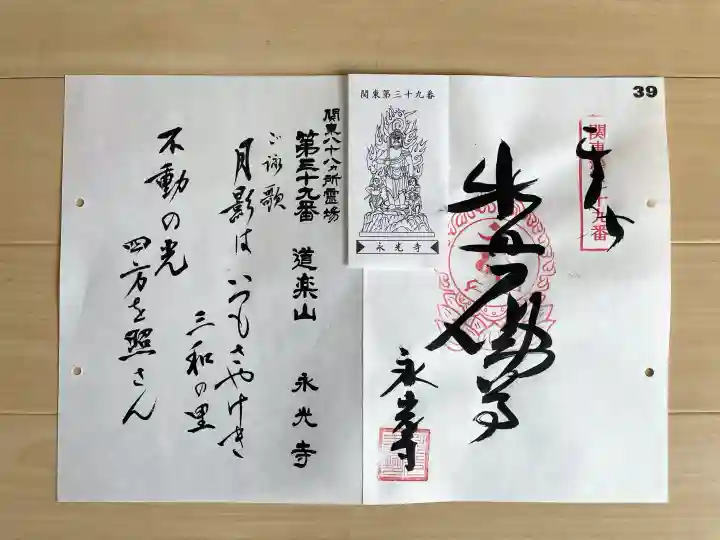 39
関東第三十九番
奉拝
不動尊
永光寺
関東第三十九番
永光寺
関東八十八ヵ所霊場
第三十九番 道楽山 永光寺
ご詠歌
月影は いつもさやけき
三和の里
不動の光
四方を照さん